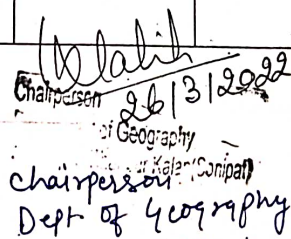 Chairperson
26/3/2022
of Geography
Kalan (Sonipat)
Chairperson
Dept of Geography